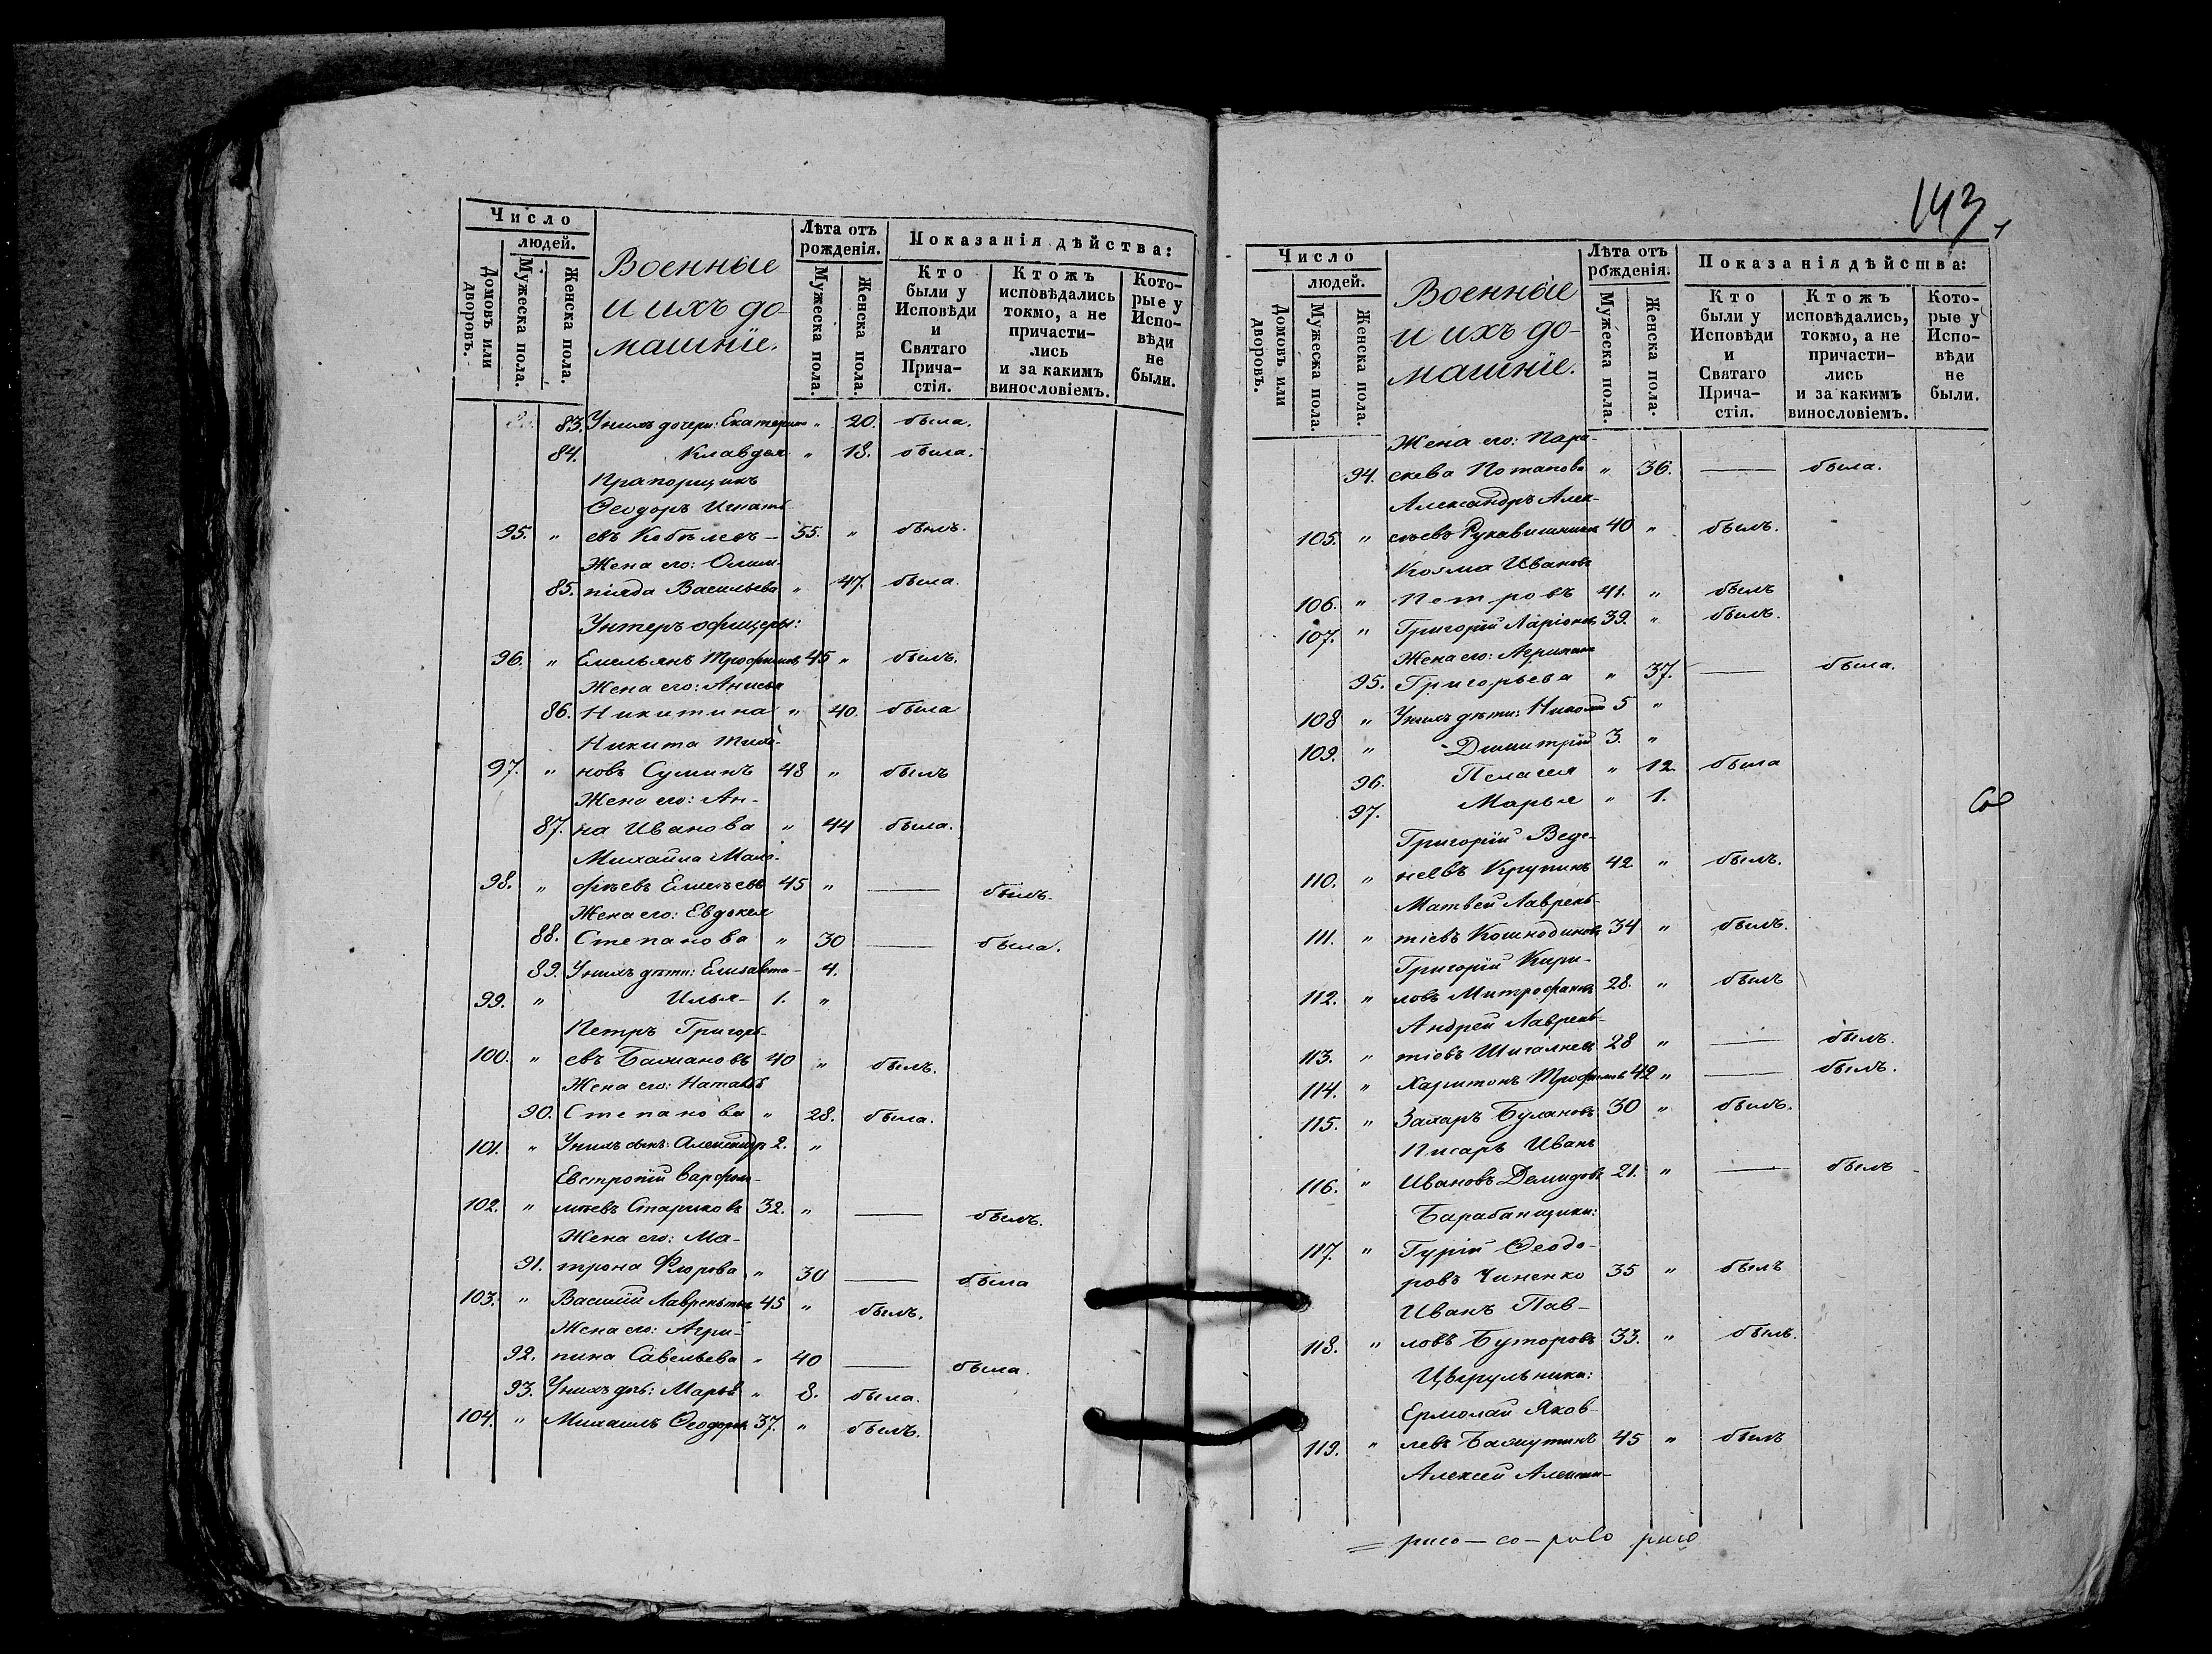 Число
людей.
Домовъ или дворовъ.
Мужеска пола.
Женска пола.
Военные
и ихъ до-
машніе.
Лѣта отъ рожденія.
Мужеска пола.
Женска пола.
Показанія дѣйства:
Кто были у Исповѣди и Святаго Прича- стія.
Ктожъ исповѣдались токмо, а не причасти- лись и за какимъ винословіемъ.
Кото- рые у Испо- вѣди не были.
83. У нихъ дочери: Екатерина " 20. была.
84. Клавдія " 18. была.
Прапорщикъ
Ѳеодоръ Игнать-
95. " евъ Кобылевъ — 55. " былъ.
Жена его: Олим-
85. піяда Васильева " 47. была.
Унтеръ офицеры:
96. " Емельянъ Трофимовъ 45 " былъ.
Жена его: Анисья
86. Никитина " 40. была
Никита Тихо-
97. " новъ Суминъ 48 " былъ
Жена его: Ан-
87. на Иванова " 44 была.
Михаила Мало-
98. " фѣевъ Елисѣевъ 45 " — былъ.
Жена его: Евдокея
88. Степанова " 30 — была.
89. У нихъ дѣти: Елизавета — 4.
99. " Илья — 1. "
Петръ Григорь-
100. " евъ Балмановъ 40 " былъ.
Жена его: Наталья
90. Степанова " 28. была.
101. " У нихъ сынъ: Александръ 2. "
Евстропій Варфоло-
102. " мѣевъ Стариковъ 32. " — былъ.
Жена его: Ма-
91. трона Флорова " 30 — была
103. " Василій Лаврентьевъ 45 " былъ.
Жена его: Агри-
92. пина Савельева " 40 — была.
93. У нихъ дочь: Марья " 8. была.
104. " Михаилъ Ѳеодоровъ 37. " былъ.
143
Число
людей.
Домовъ или дворовъ.
Мужеска пола.
Женска пола.
Военные
и ихъ до-
машніе.
Лѣта отъ рожденія.
Мужеска пола.
Женска пола.
Показанія дѣйства:
Кто были у Исповѣди и Святаго Прича- стія.
Ктожъ исповѣдались, токмо, а не причасти- лись и за какимъ винословіемъ.
Кото- рые у Испо- вѣди не были.
Жена его: Пара-
94. скева Потапова " 36. — была.
Александръ Алек-
105. " сѣевъ Рукавишниковъ 40 " былъ.
Козма Ивановъ
106. " Петровъ 41. " былъ
107. " Григорій Ларіоновъ 39. " былъ.
Жена его: Агрипина
95. Григорьева " 37. — была.
108 " У нихъ дѣти: Николай 5 "
109. " Димитрій 3. "
96. Пелагея " 12. была
97. Марья " 1.
Со
Григорій Веде-
110. " неевъ Крупинъ 42. " былъ.
Матвей Лаврень-
111. " тіевъ Кошкодиновъ 34 " былъ.
Григорій Кири-
112. " ловъ Митрофановъ 28. " былъ
Андрей Лаврень-
113. " тіевъ Шигалневъ 28 " — былъ.
114. " Харитонъ Трофимовъ 42 " — былъ.
115. " Захаръ Булановъ 30 " былъ.
Писарь Иванъ
116. " Ивановъ Демидовъ 21. " — былъ
Барабанщики:
117. " Гурій Ѳеодо-
ровъ Чиненко 35 " былъ
Иванъ Пав-
118. " ловъ Буторовъ 33. " былъ.
Цырульники:
Ермолай Яков-
119. " левъ Балмутинъ 45 " былъ
Алексей Алексѣ-